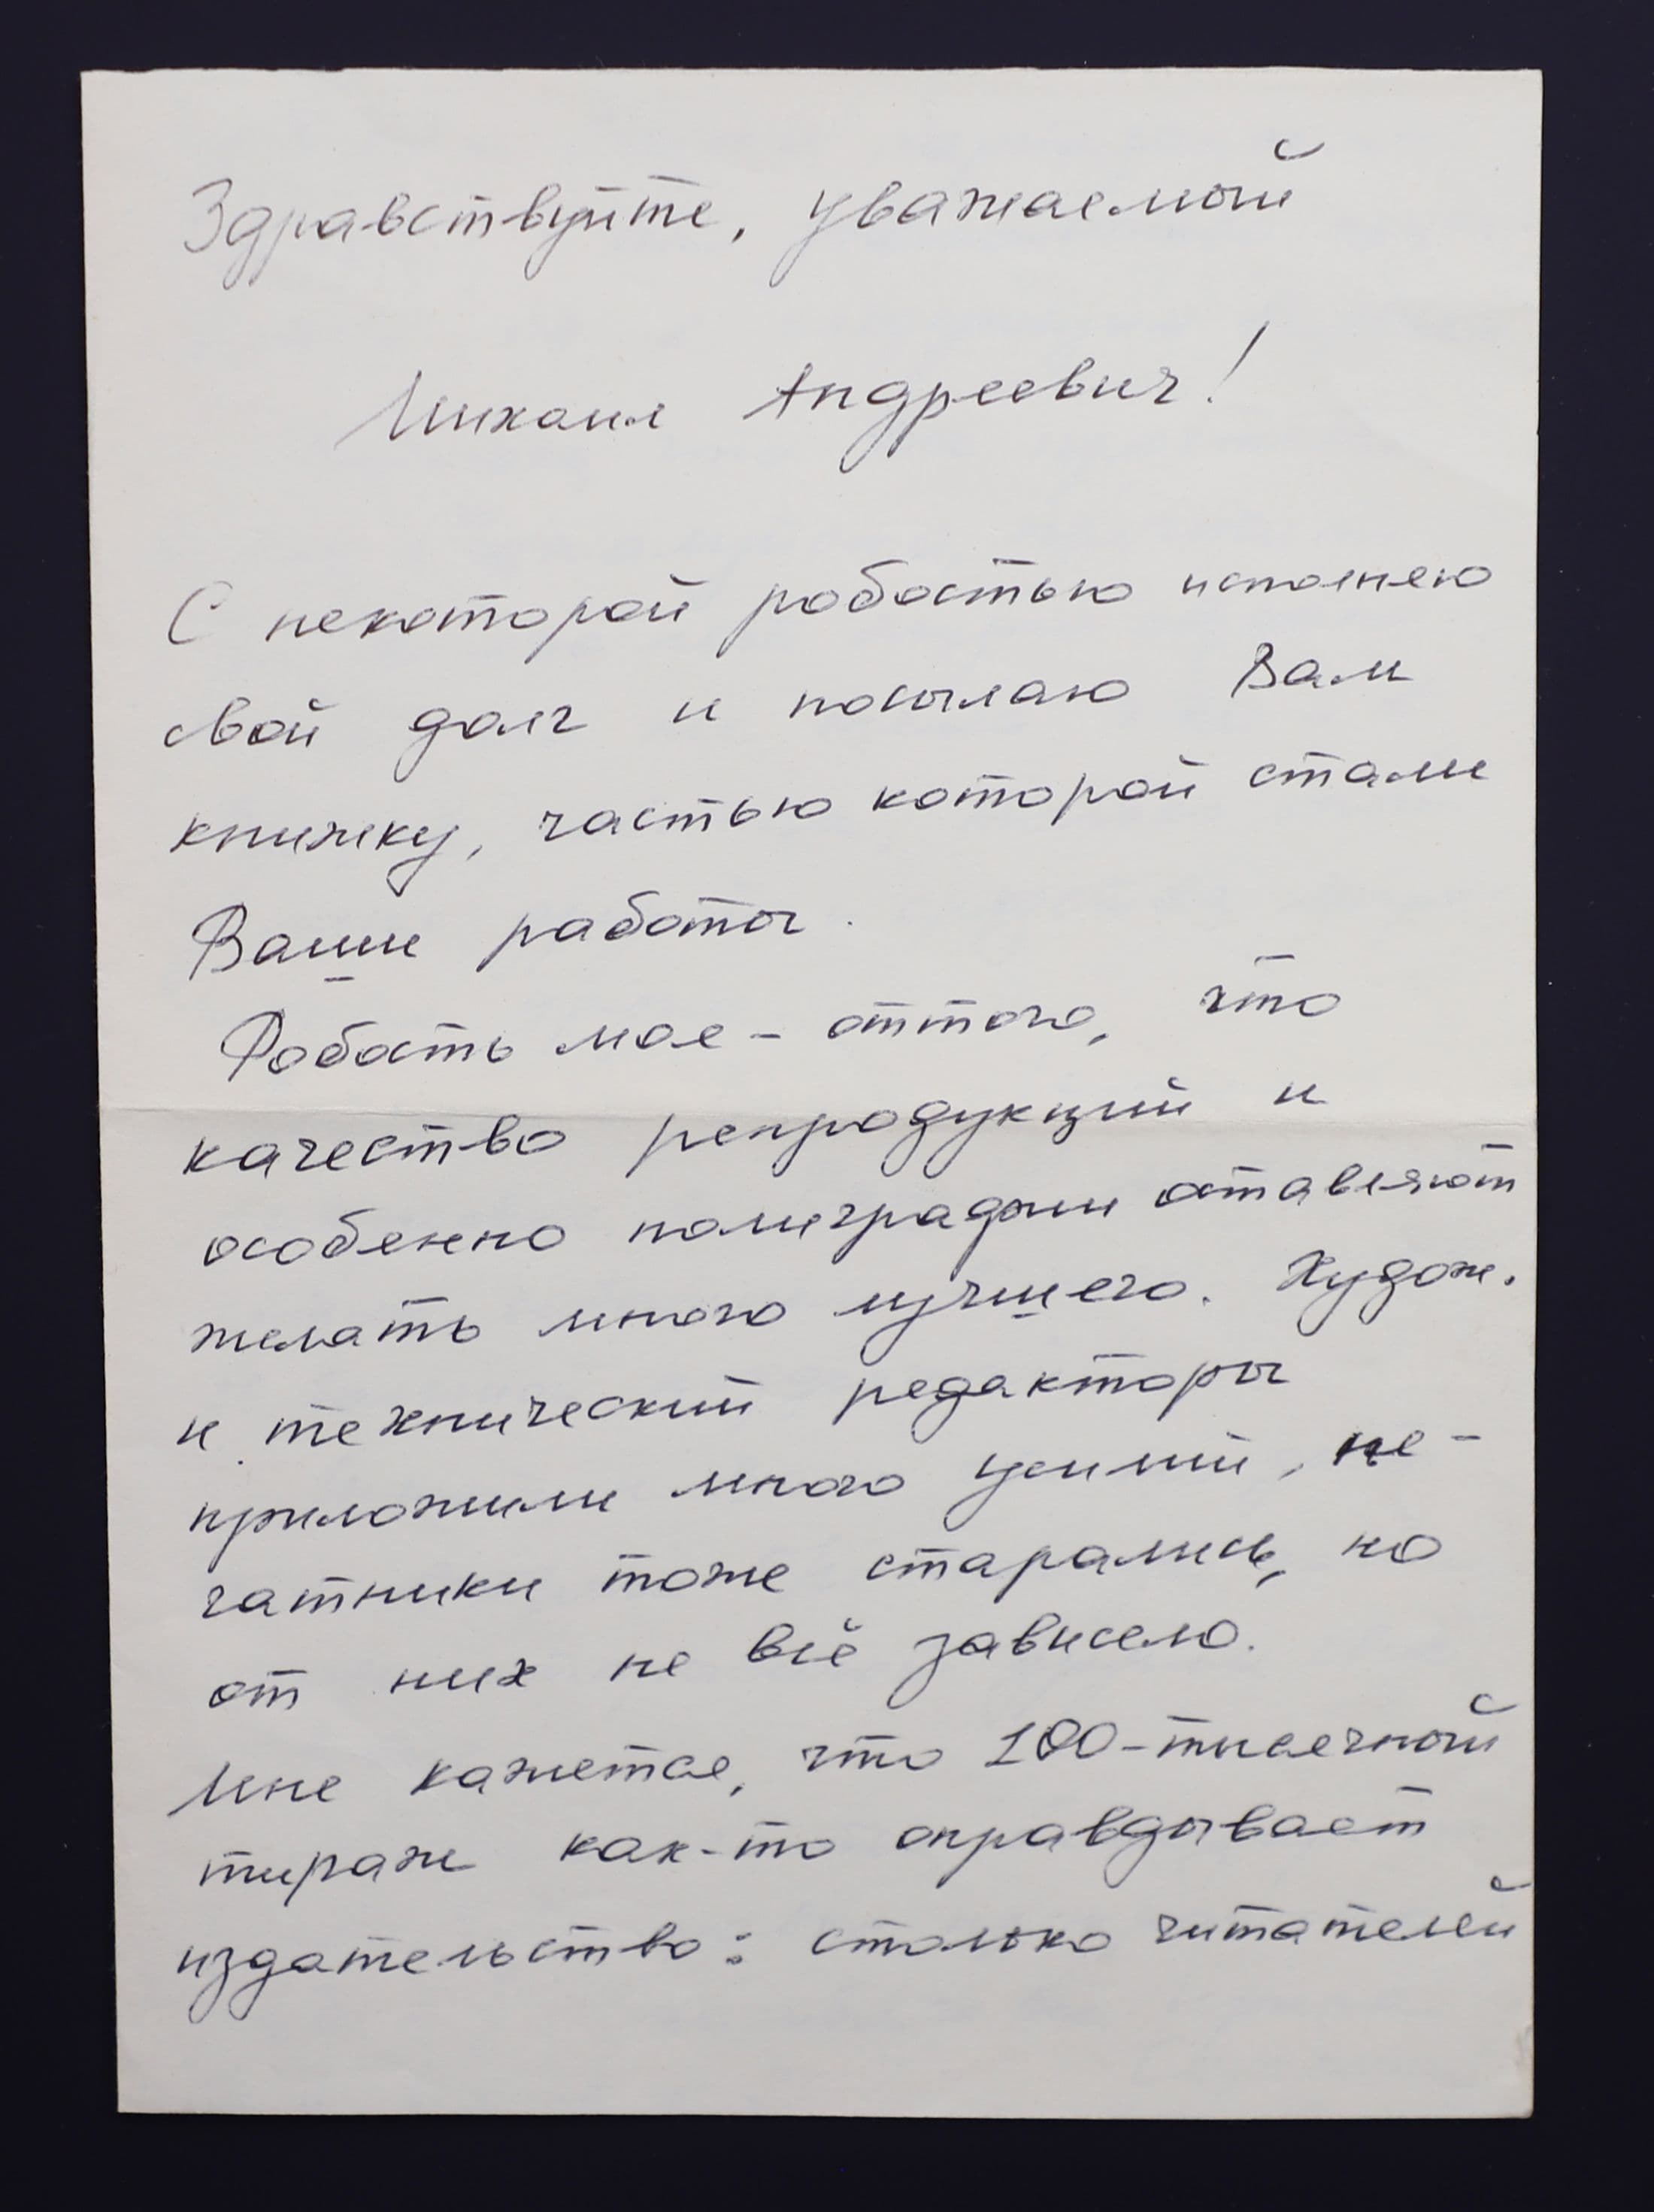 Здравствуйте, уважаемый
Михаил Андреевич!
С некоторой робостью исполняю
свой долг и посылаю Вам
книжку, частью которой стали
Ваши работы.
Робость моя - оттого, что
качество репродукций и
особенно полиграфии оставляют
желать много лучшего. Худож.
и технический редакторы
приложили много усилий, пе-
чатники тоже старались, но
от них не всё зависело.
Мне кажется, что 100-тысячный
тираж как-то оправдывает
издательство: столько читателей